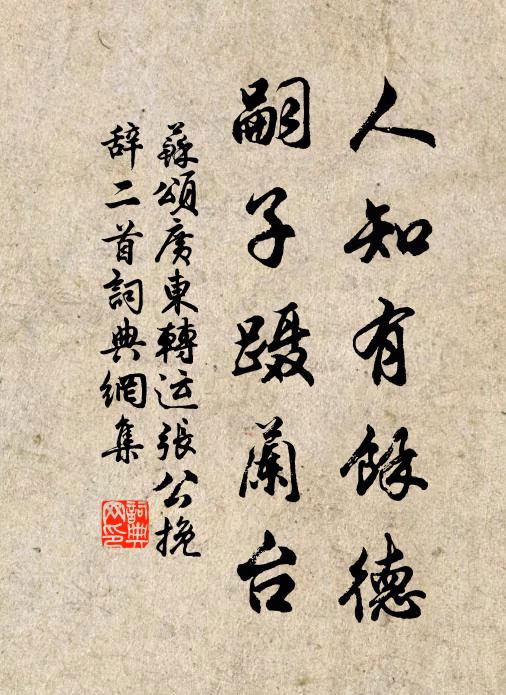 人知有餘德
嗣子蹑蘭台
蘇頌廣東轉运張公挽
辞二首詞典網集
詞典
网印